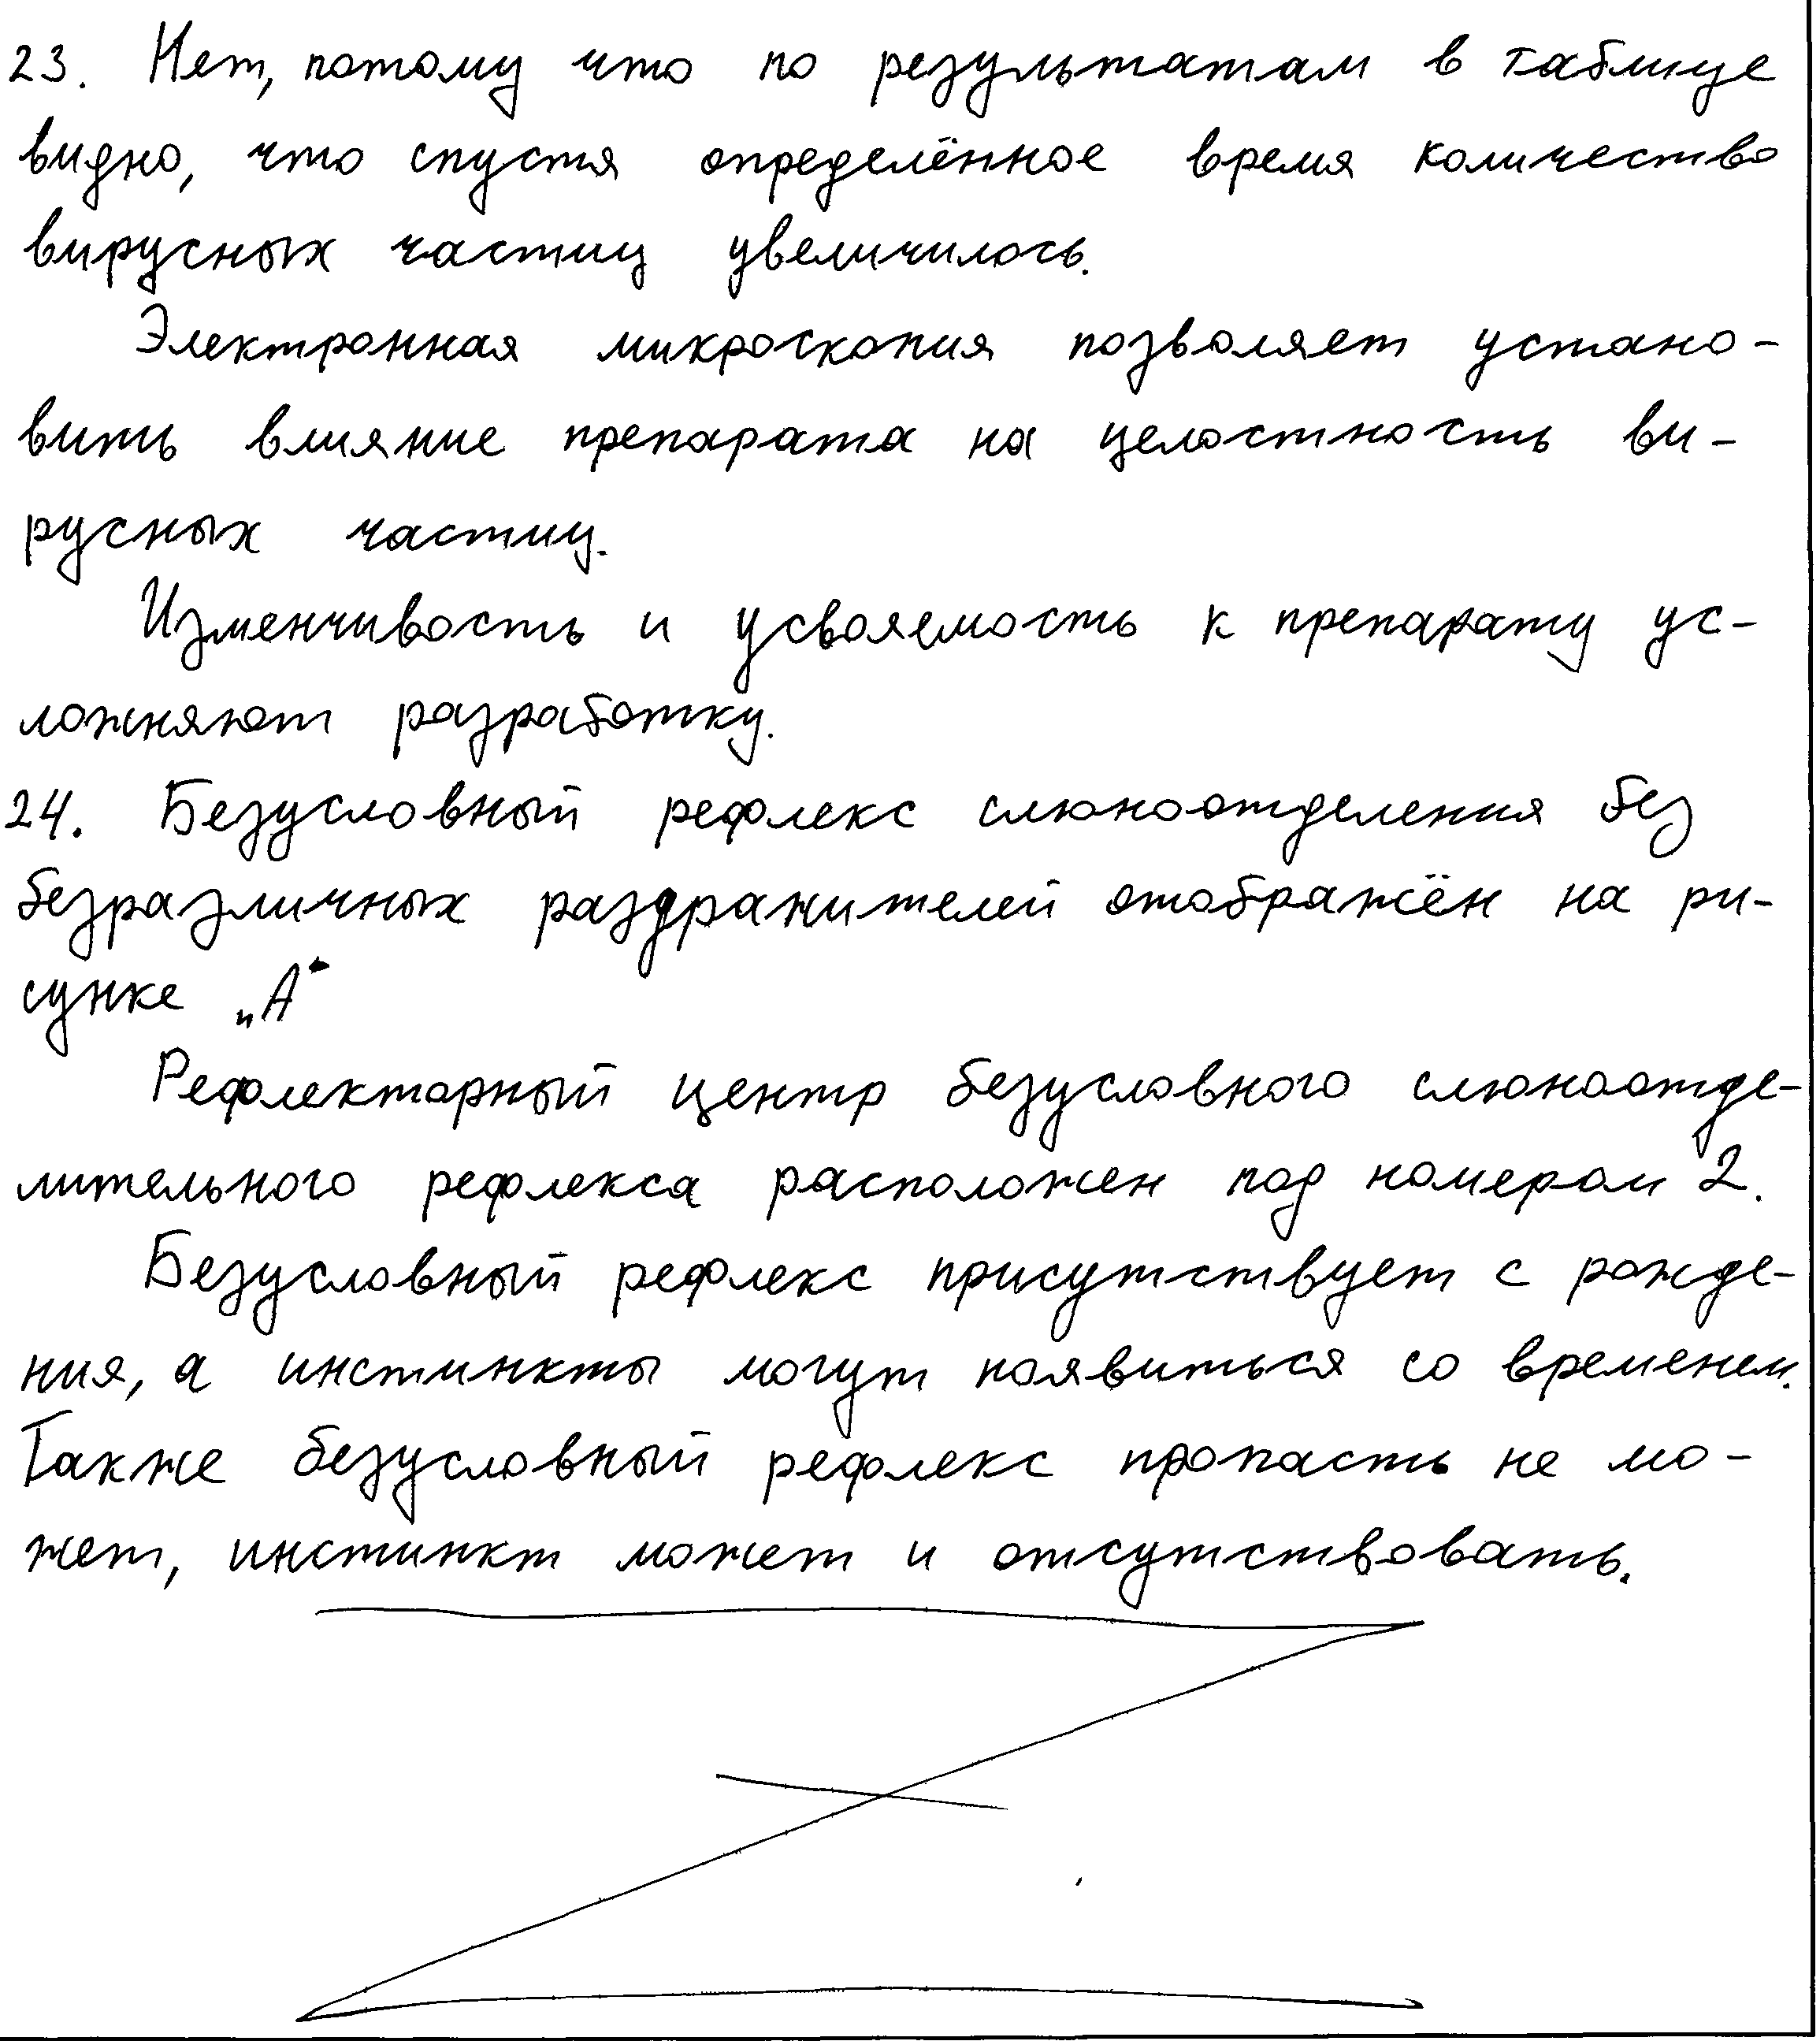 23. Нет, потому что по результатам в таблице
видно, что спустя определённое время количество
вирусных частиц увеличилось.
Электронная микроскопия позволяет устано-
вить влияние препарата на целостность ви-
русных частиц.
Изменчивость и усвояемость к препарату ус-
ложняют разработку.
24. Безусловный рефлекс слюноотделения без
безразличных раздражителей отображён на ри-
сунке „А“
Рефлекторный центр безусловного слюноотде-
лительного рефлекса расположен под номером 2.
Безусловный рефлекс присутствует с рожде-
ния, а инстинкты могут появиться со временем.
Также безусловный рефлекс пропасть не мо-
жет, инстинкт может и отсутствовать.